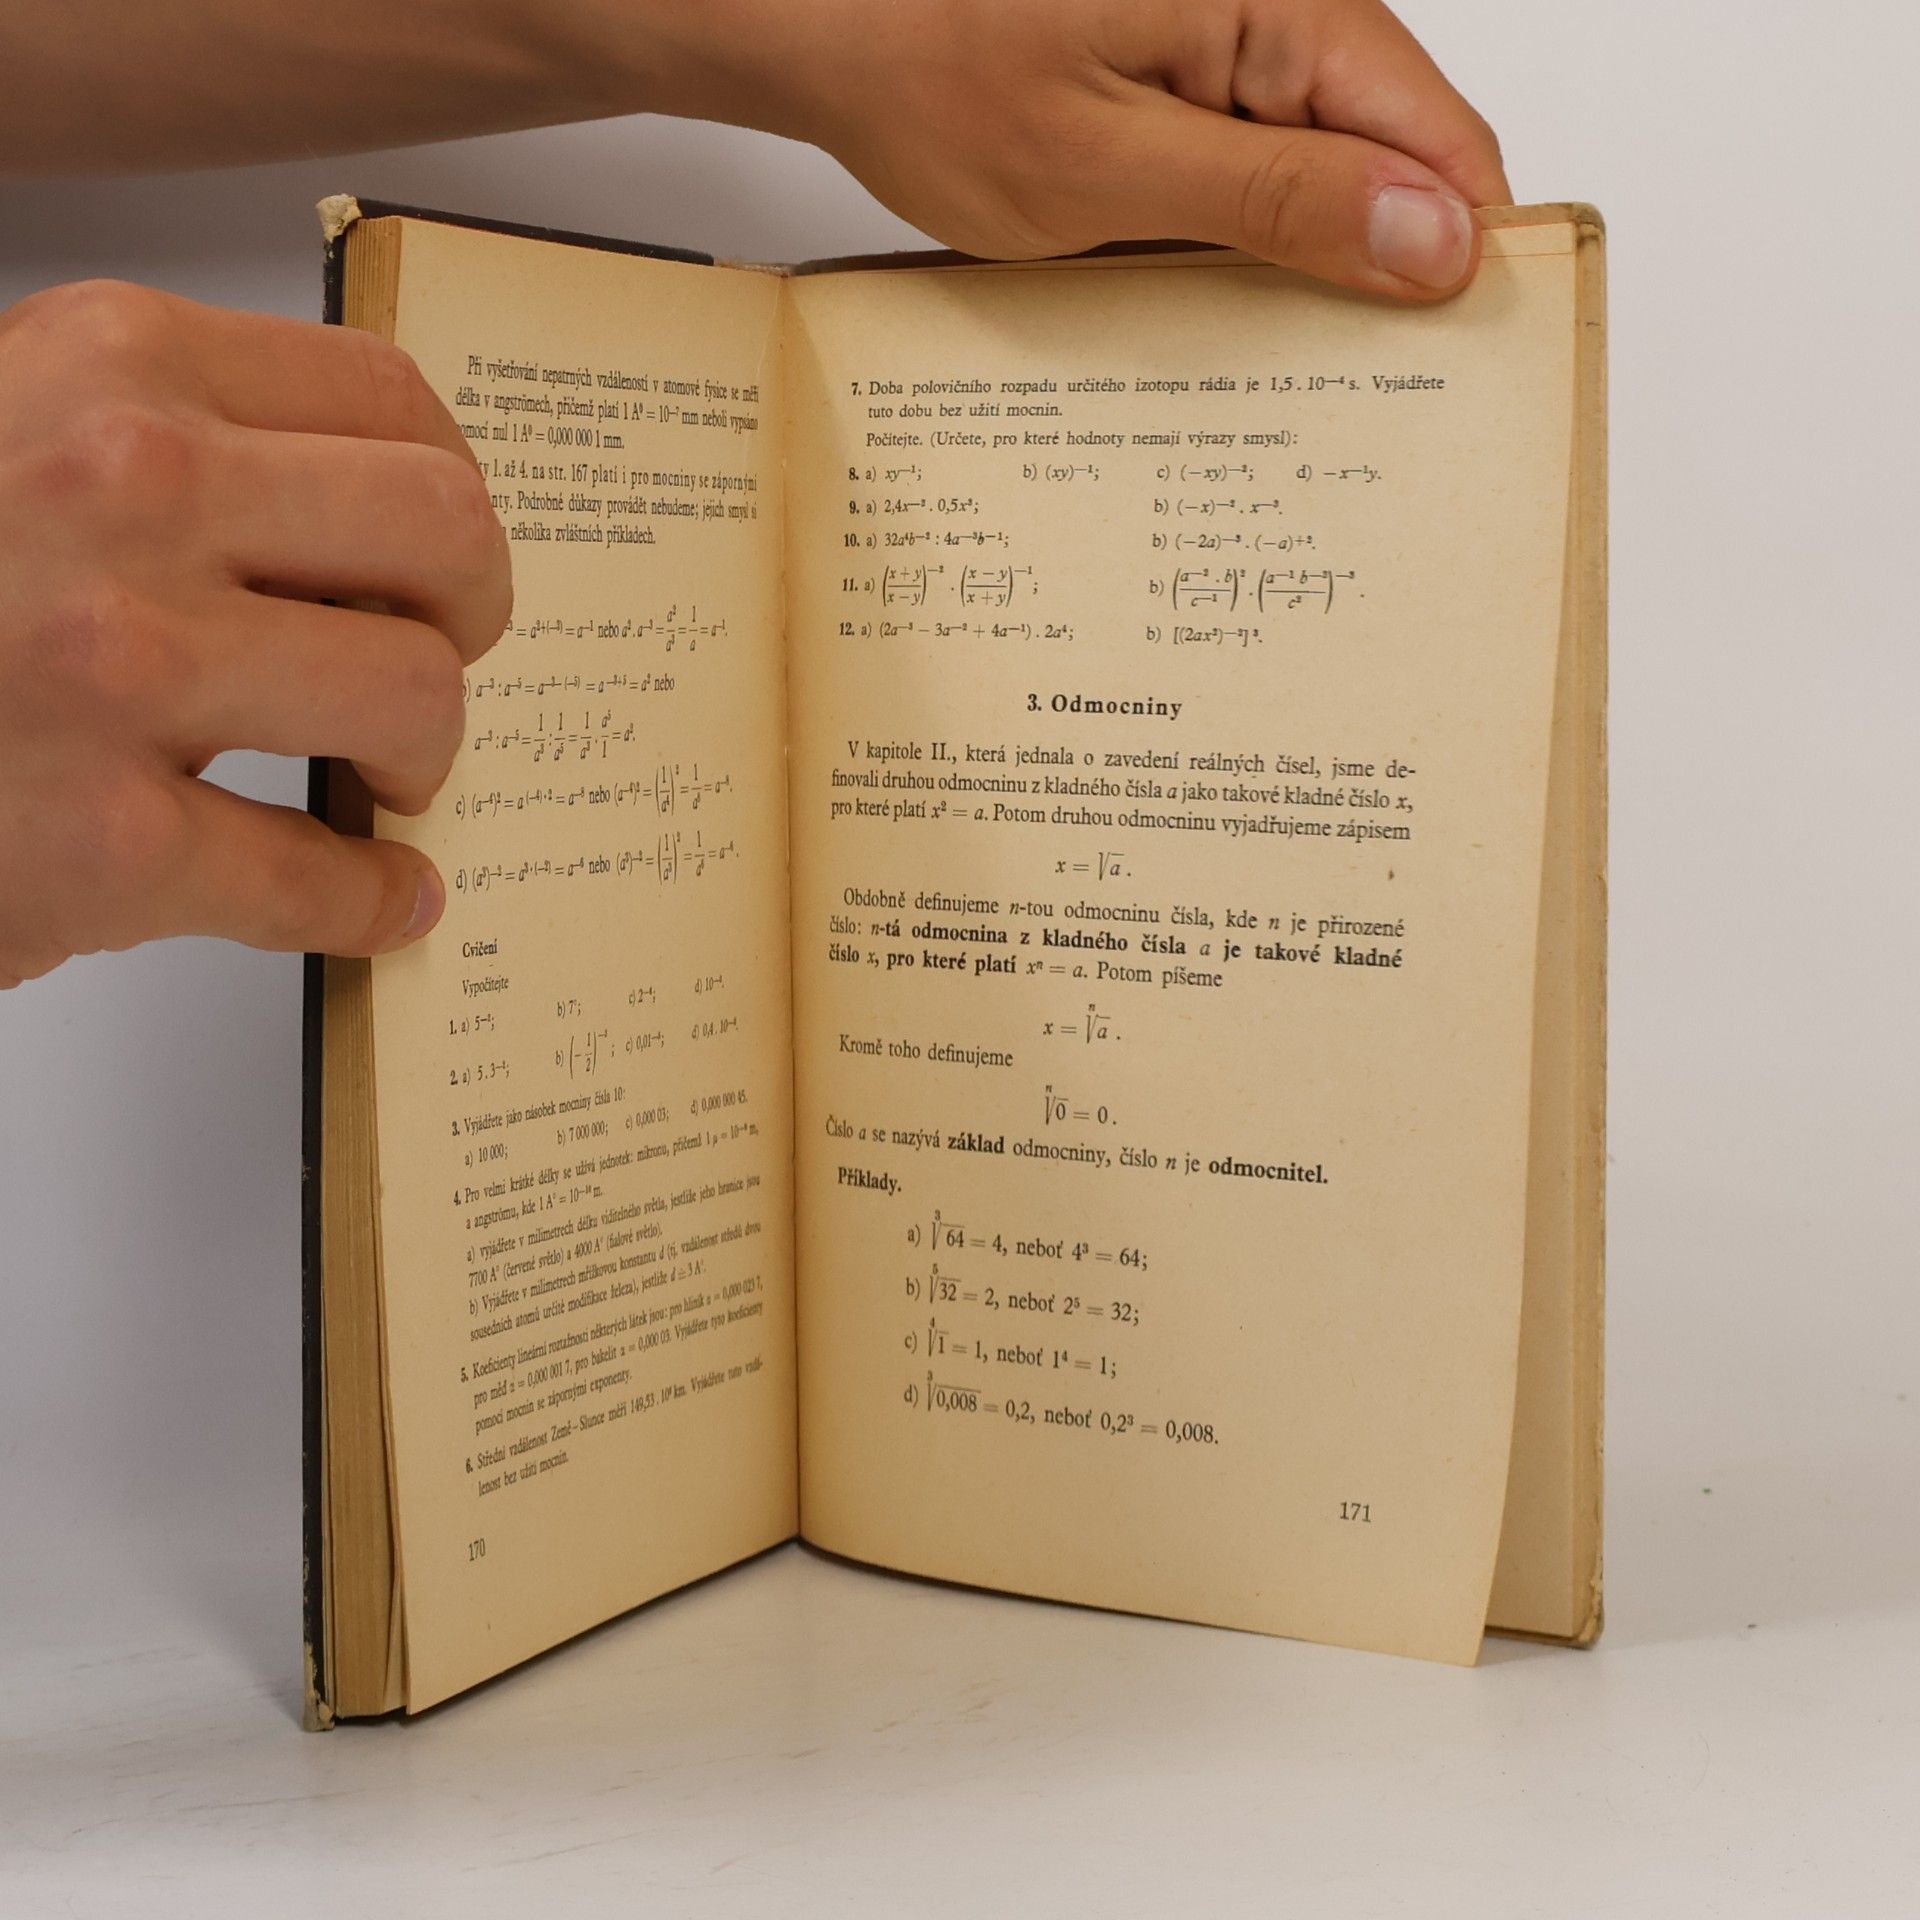 Při vyšetřování nepatrných vzdáleností v atomové fysice se měří
délka v angströmech, přičemž platí 1 A⁰ = 10⁻⁷ mm neboli vypsáno
pomocí nul 1 A⁰ = 0,000 000 1 mm.
1. až 4. na str. 167 platí i pro mocniny se zápornými
Podrobné důkazy provádět nebudeme; jejich smysl si
několika zvláštních příkladech.
= a²⁺⁽⁻³⁾ = a⁻¹ nebo a² . a⁻³ = a²/a³ = 1/a = a⁻¹.
b) a⁻³ : a⁻⁵ = a⁻³⁻⁽⁻⁵⁾ = a⁻³⁺⁵ = a² nebo
a⁻³ : a⁻⁵ = 1/a³ : 1/a⁵ = 1/a³ . a⁵/1 = a².
c) (a⁻⁴)² = a⁽⁻⁴⁾·² = a⁻⁸ nebo (a⁻⁴)² = (1/a⁴)² = 1/a⁸ = a⁻⁸.
d) (a³)⁻² = a³·⁽⁻²⁾ = a⁻⁶ nebo (a³)⁻² = (1/a³)² = 1/a⁶ = a⁻⁶.
Cvičení
Vypočítejte
1. a) b) c) d)
2. a) b) c) d)
3. Vyjádřete jako násobek mocniny čísla 10:
a) 10 000; b) 7 000 000; c) 0,000 03; d) 0,000 000 45.
4. Pro velmi krátké délky se užívá jednotek: mikronu, přičemž 1 μ = 10⁻⁶ m,
a angströmu, kde 1 A° = 10⁻¹⁰ m.
a) vyjádřete v milimetrech délku viditelného světla, jestliže jeho hranice jsou
7700 A° (červené světlo) a 4000 A° (fialové světlo).
b) Vyjádřete v milimetrech mřížkovou konstantu d (tj. vzdálenost středů dvou
sousedních atomů určité modifikace železa), jestliže d ≐ 3 A°.
5. Koeficienty lineární roztažnosti některých látek jsou: pro hliník α = 0,000 023 7,
pro měď α = 0,000 001 7, pro bakelit α = 0,000 03. Vyjádřete tyto koeficienty
pomocí mocnin se zápornými exponenty.
6. Střední vzdálenost Země – Slunce měří 149,53 . 10⁶ km. Vyjádřete tuto vzdá-
lenost bez užití mocnin.
170
7. Doba polovičního rozpadu určitého izotopu rádia je 1,5 . 10⁻⁴ s. Vyjádřete
tuto dobu bez užití mocnin.
Počítejte. (Určete, pro které hodnoty nemají výrazy smysl):
8. a) xy⁻¹; b) (xy)⁻¹; c) (−xy)⁻²; d) −x⁻¹y.
9. a) 2,4x⁻³ . 0,5x³; b) (−x)⁻² . x⁻³.
10. a) 32a⁴b⁻² : 4a⁻³b⁻¹; b) (−2a)⁻³ . (−a)⁺².
11. a) ((x + y)/(x − y))⁻² . ((x − y)/(x + y))⁻¹; b) ((a⁻² . b)/c⁻¹)² . ((a⁻¹ b⁻²)/c²)⁻³.
12. a) (2a⁻³ − 3a⁻² + 4a⁻¹) . 2a⁴; b) [(2ax²)⁻²]³.
3. Odmocniny
V kapitole II., která jednala o zavedení reálných čísel, jsme de-
finovali druhou odmocninu z kladného čísla a jako takové kladné číslo x,
pro které platí x² = a. Potom druhou odmocninu vyjadřujeme zápisem
x = √a .
Obdobně definujeme n-tou odmocninu čísla, kde n je přirozené
číslo: n-tá odmocnina z kladného čísla a je takové kladné
číslo x, pro které platí xⁿ = a. Potom píšeme
x = ⁿ√a .
Kromě toho definujeme
ⁿ√0 = 0 .
Číslo a se nazývá základ odmocniny, číslo n je odmocnitel.
Příklady.
a) ³√64 = 4, neboť 4³ = 64;
b) ⁵√32 = 2, neboť 2⁵ = 32;
c) ⁴√1 = 1, neboť 1⁴ = 1;
d) ³√0,008 = 0,2, neboť 0,2³ = 0,008.
171